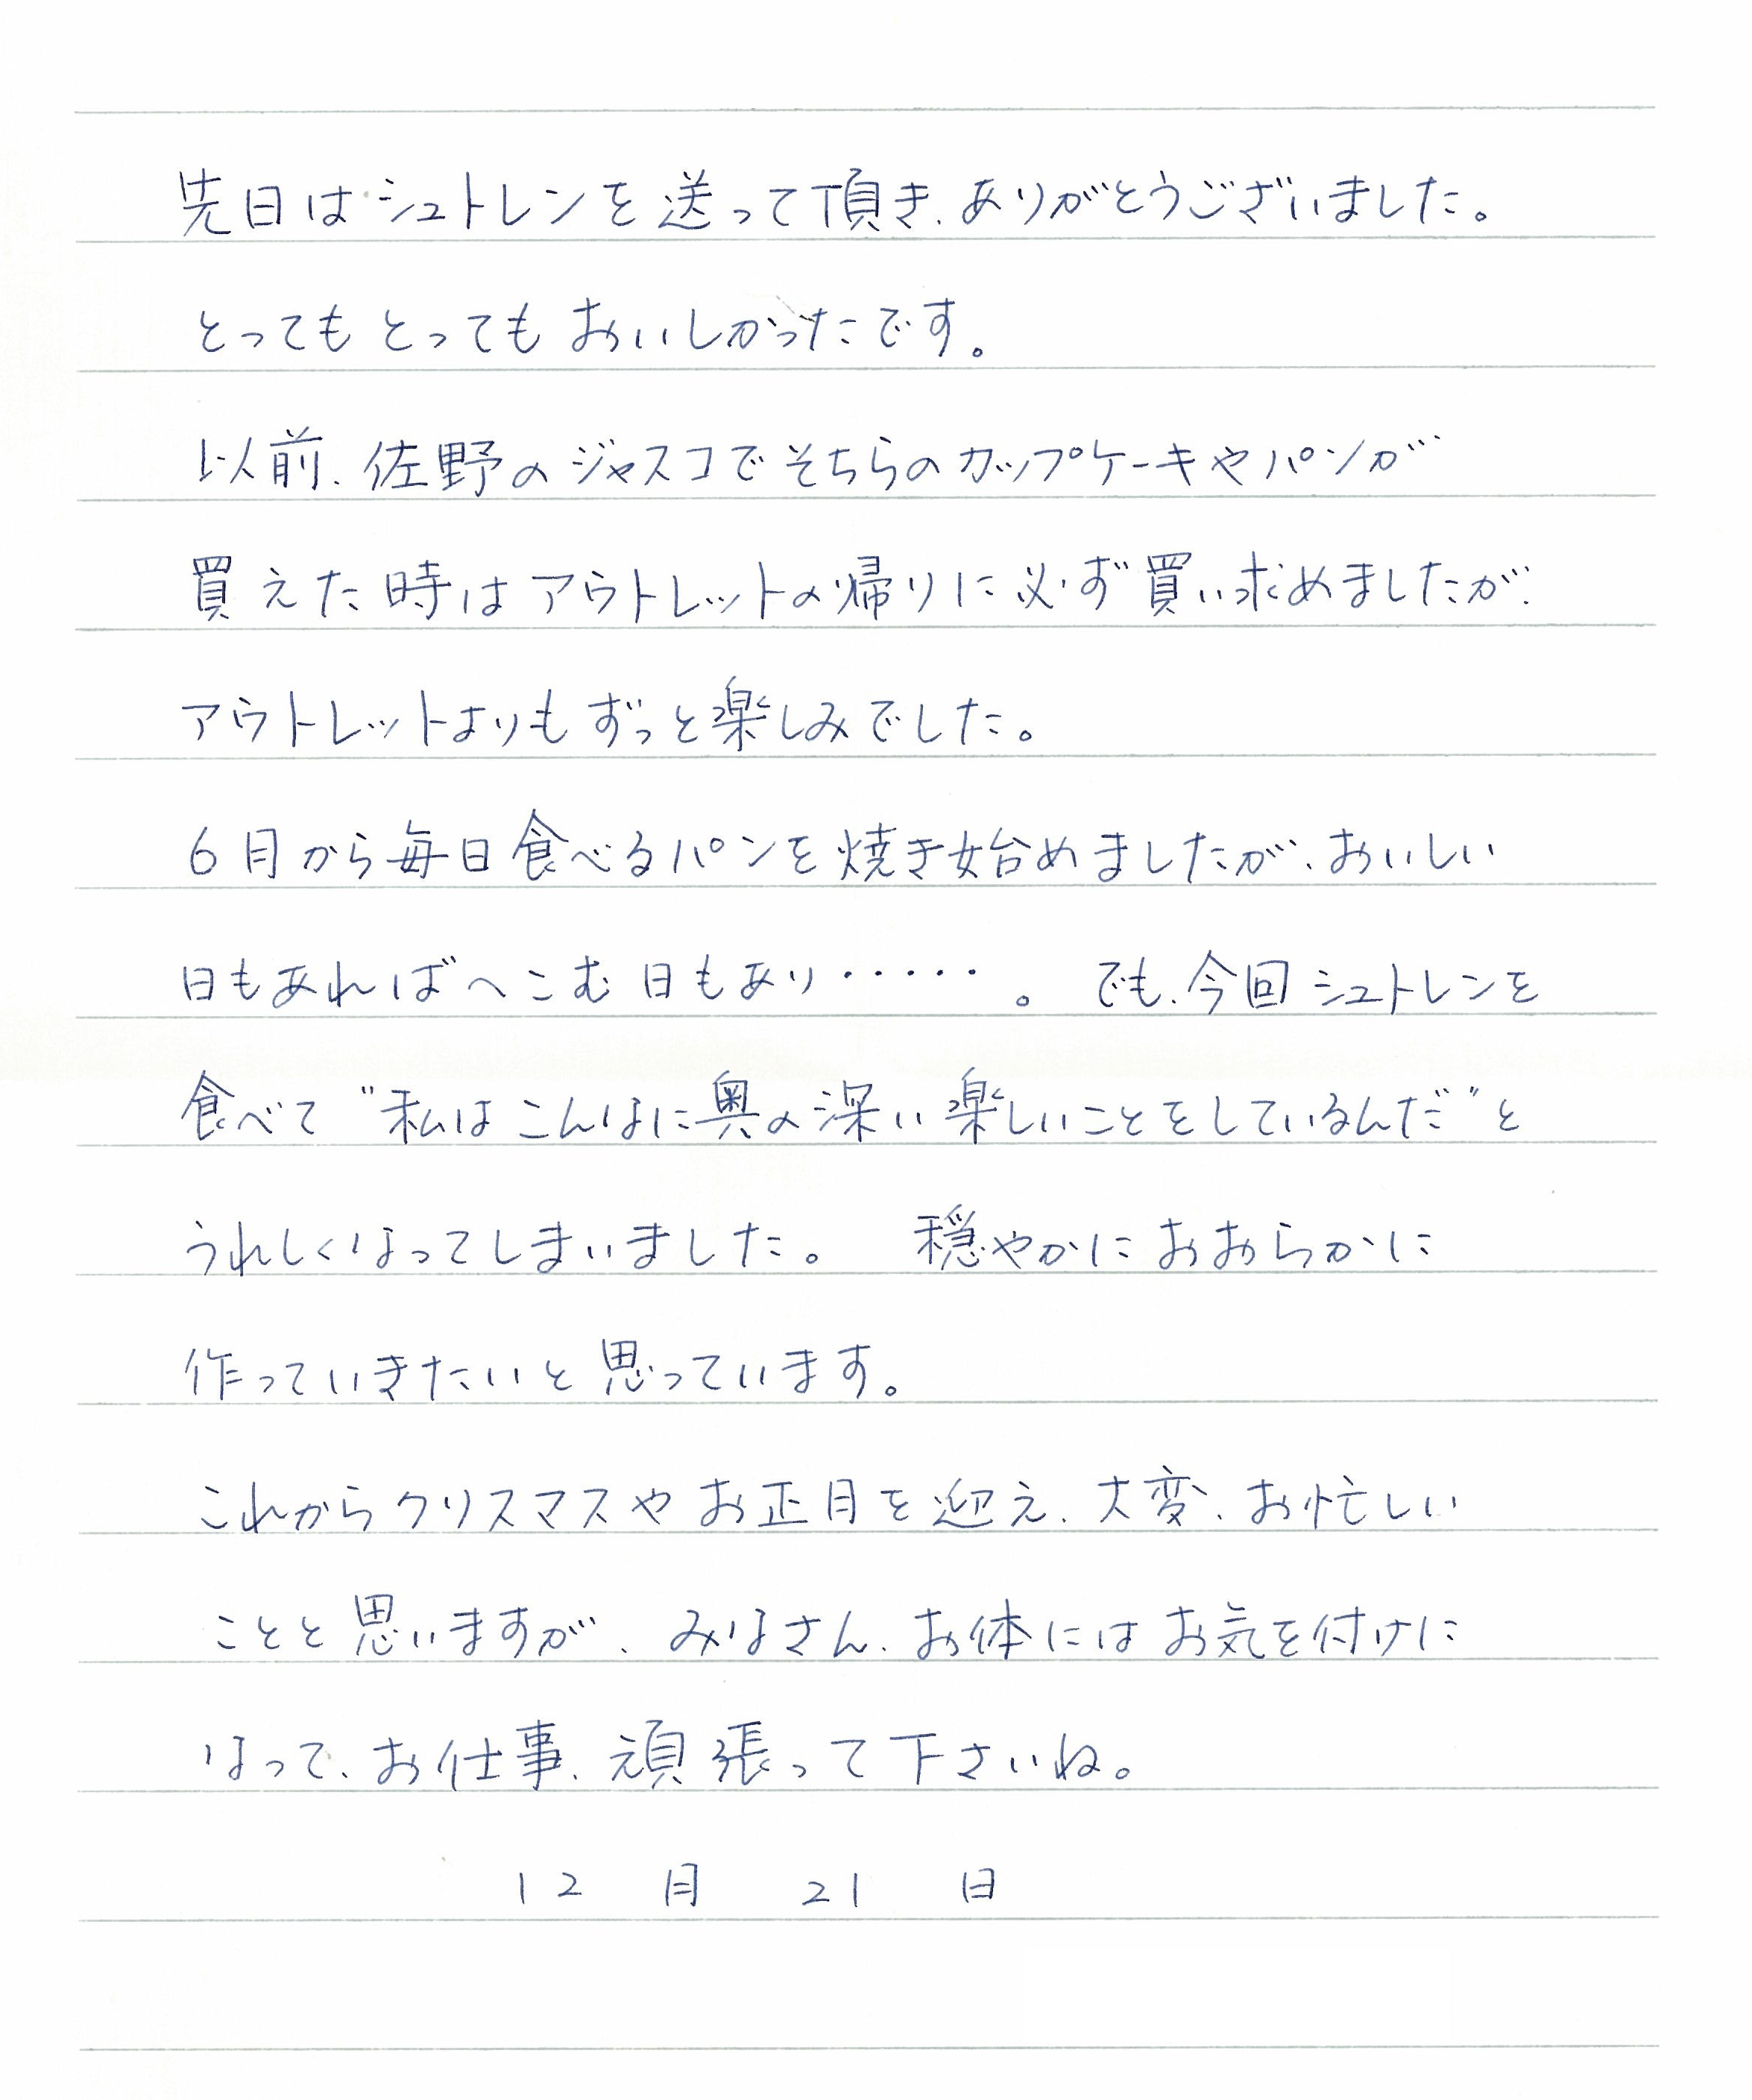 先日はシュトレンを送って頂き、ありがとうございました。
とってもとってもおいしかったです。
以前、佐野のジャスコでそちらのカップケーキやパンが
買えた時はアウトレットの帰りに必ず買い求めましたが、
アウトレットよりもずっと楽しみでした。
6月から毎日食べるパンを焼き始めましたが、おいしい
日もあればへこむ日もあり・・・・・・。 でも、今回シュトレンを
食べて"私はこんなに奥の深い楽しいことをしているんだ"と
うれしくなってしまいました。 穏やかにおおらかに
作っていきたいと思っています。
これからクリスマスやお正月を迎え、大変、お忙しい
ことと思いますが、みなさん、お体にはお気を付けに
なって、お仕事、頑張って下さいね。
12 月 21 日